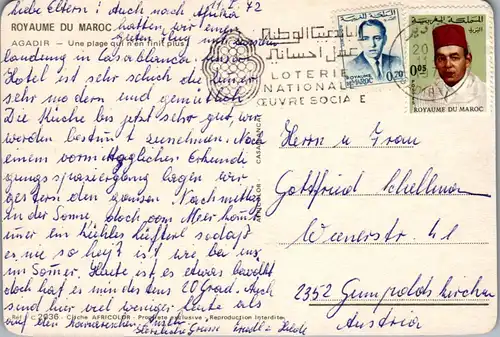 11. I. 72
liebe Eltern! auch noch Afrika
ROYAUME DU MAROC
hatten wir einen
AGADIR - Une plage qui n'en finit plus
guten Flug mit
landung in Casablanca.
Hotel ist sehr schön die Zimmer
sehr modern und gemütlich.
Die Küche bis jetzt sehr gut, wir
werden bestimmt zunehmen. Nach
einem vormittäglichen Erkundi
gungsspaziergang lagen wir
gestern den ganzen Nachmittag
in der Sonne, doch vom Meer kommt
immer ein kühles Lüfterl sodaß
es nie so heiß ist wie bei uns
im Sommer. Heute ist es etwas bewölkt
doch hat es min destens 20 Grad. Auch
sind hier viel weniger Leute als
auf den Kanarischen Inseln
Herzliche Grüsse Friedl + Heide
Réf. C 2036 - Cliché AFRICOLOR - Propriété exclusive - Reproduction Interdite
AFRICOLOR CASABLANCA
LOTERIE
NATIONALE
ŒUVRE SOCIALE
المملكة المغربية
ROYAUME
DU MAROC
0,20
المملكة المغربية
0,05
ROYAUME DU MAROC
Herrn u Frau
Gottfried Schellmann
Wienerstr. 41
2352 Gumpoldskirchen
Austria